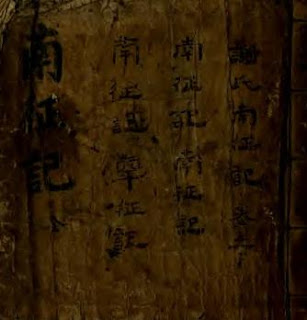 謝氏南征記 卷之
南征記 南征記
南征 征記
南征記